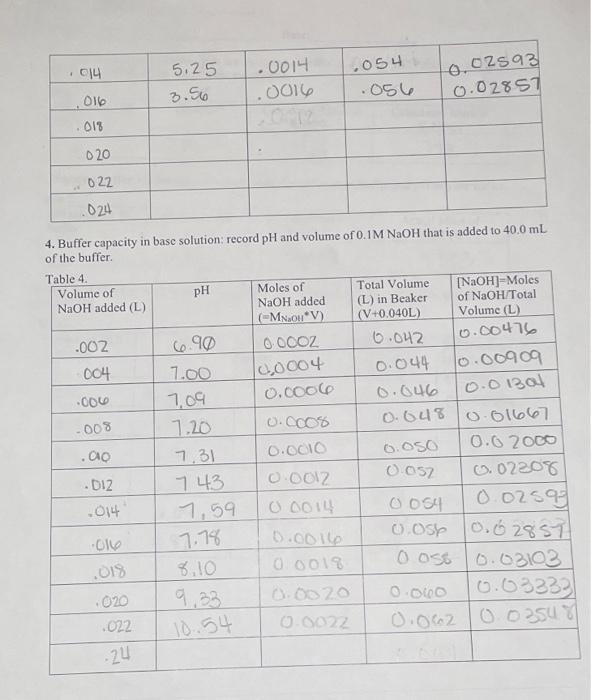 .014 5.25 .0014 .054 0.02593
.016 3.56 .0016 .056 0.02857
.018
020
.022
.024
4. Buffer capacity in base solution: record pH and volume of 0.1M NaOH that is added to 40.0 mL
of the buffer.
Table 4.
Volume of NaOH added (L) pH Moles of NaOH added (=MNaOH*V) Total Volume (L) in Beaker (V+0.040L) [NaOH]=Moles of NaOH/Total Volume (L)
.002 6.90 0.0002 0.042 0.00476
004 7.00 0,0004 0.044 0.00909
.006 7,09 0.0006 0.046 0.01304
.008 7.20 0.0008 0.048 0.01667
.010 7.31 0.0010 0.050 0.02000
.012 7 43 0.0012 0.052 0.02308
.014 7,59 0 0014 0 054 0.02593
.016 7.78 0.0016 0.056 0.02857
.018 8.10 0 0018 0 058 0.03103
.020 9.33 0.0020 0.060 0.03333
.022 10.54 0.0022 0.062 0.03548
.24